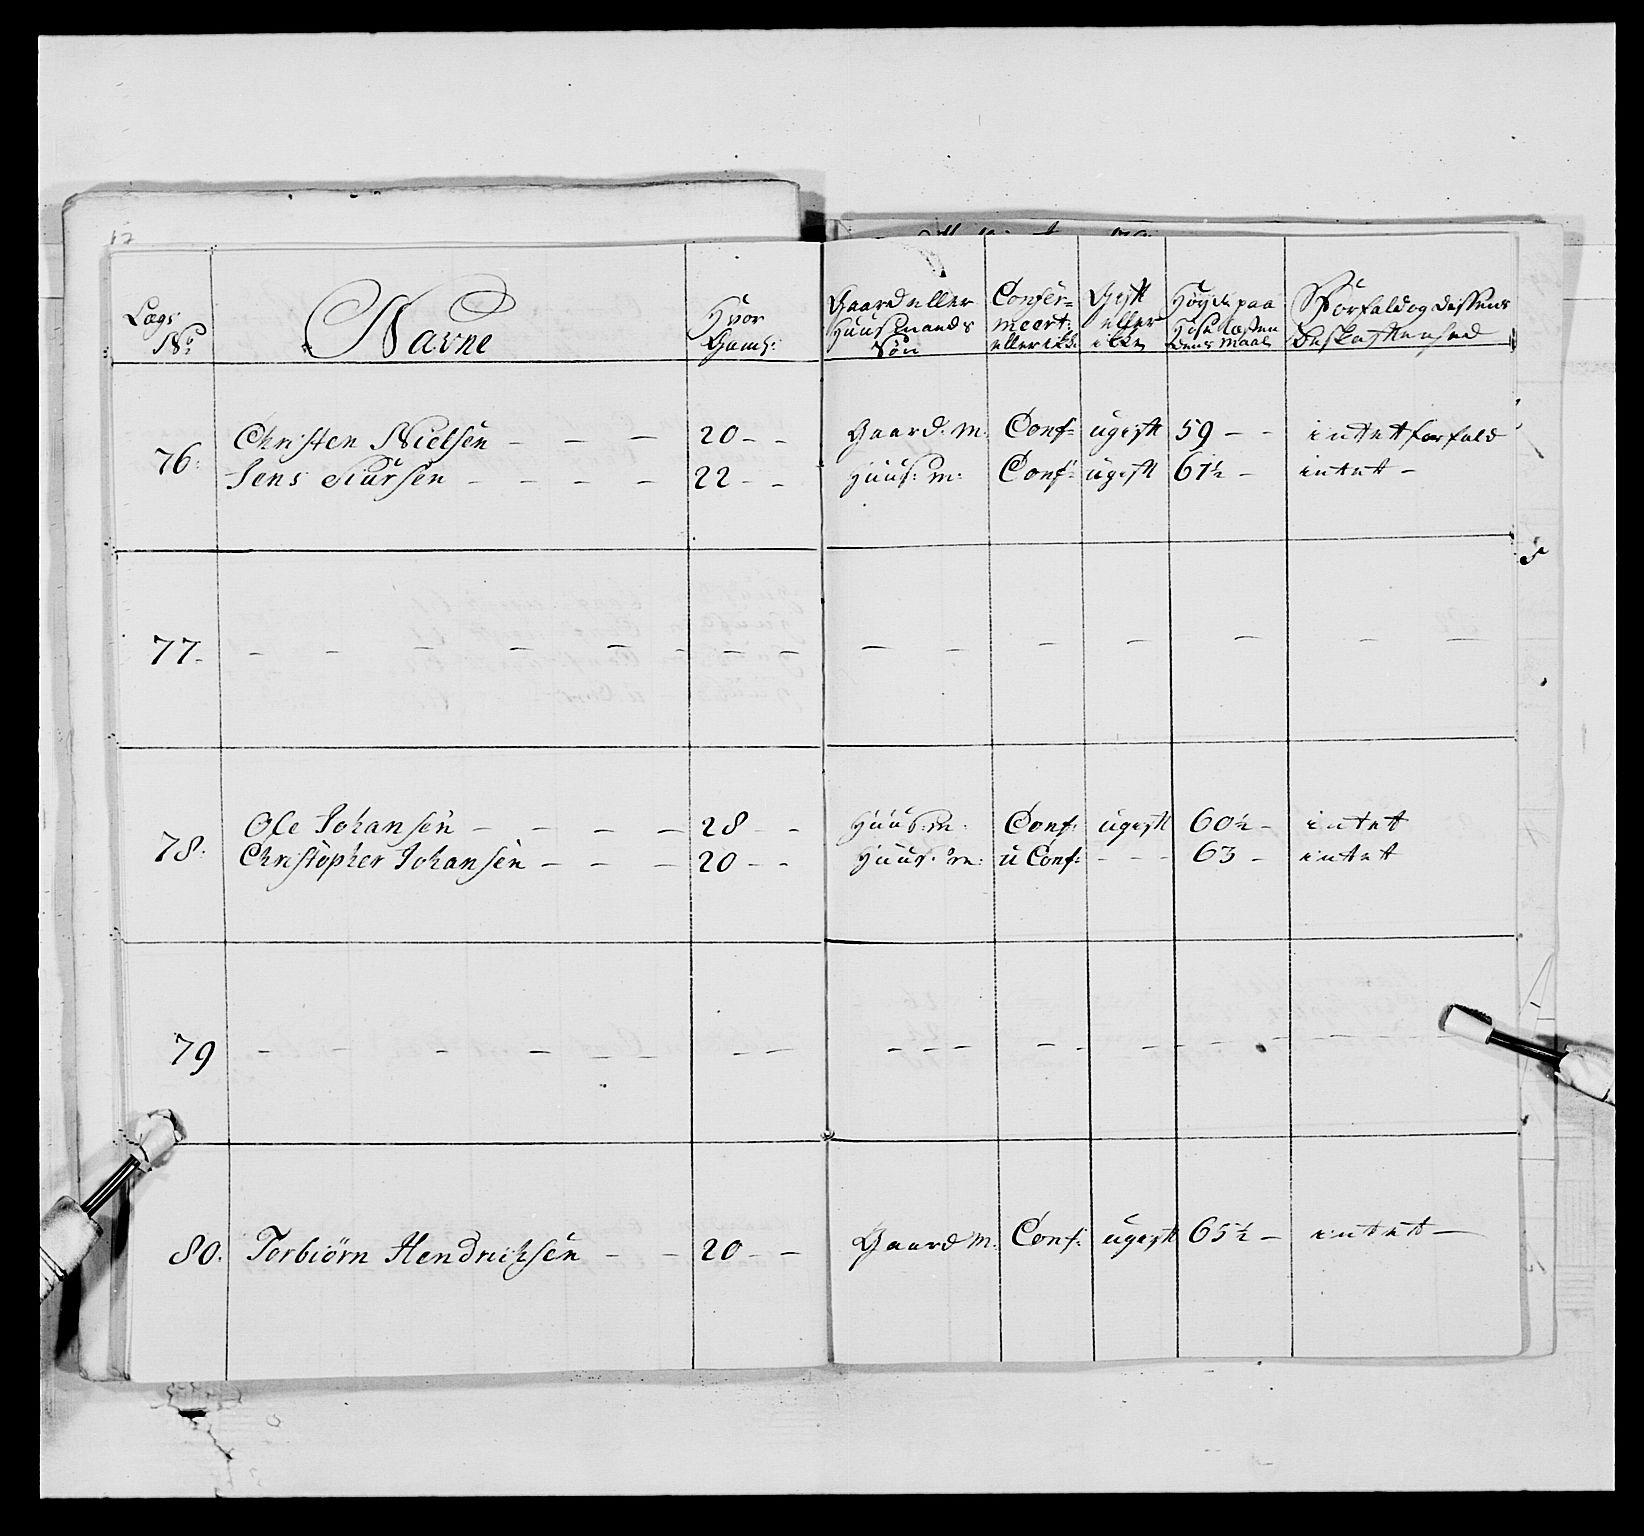 Lægs No | Navne | Hvor Gaml: | Gaard eller Huusmands Søn | Confer= meert: eller ikke | Gift eller ikke | Høyde paa Hose Læsten dens Maal | Forfald og dessens Beskaffenhed
76: | Christen Nielsen - - - | 20 - - | Gaard: M: | Conf: | ugift | 59 - - | intet forfald
Jens Siursen - - - - | 22 - - | Huus: m: | Conf: | ugift | 61½ - | intet -
77. - - - - - - - - - - - - - -
78. | Ole Johansen - - - - | 28 - - | Huus: m: | Conf: | ugift | 60½ - | intet
Christopher Johansen - - - | 20 - - | Huus: m: | u Conf: | - - - | 63 - | intet
79 - - - - - - - - - - - - - -
80. | Torbiørn Hendrichsen - - | 20 - - | Gaard M: | Conf: | ugift | 65½ - | intet -